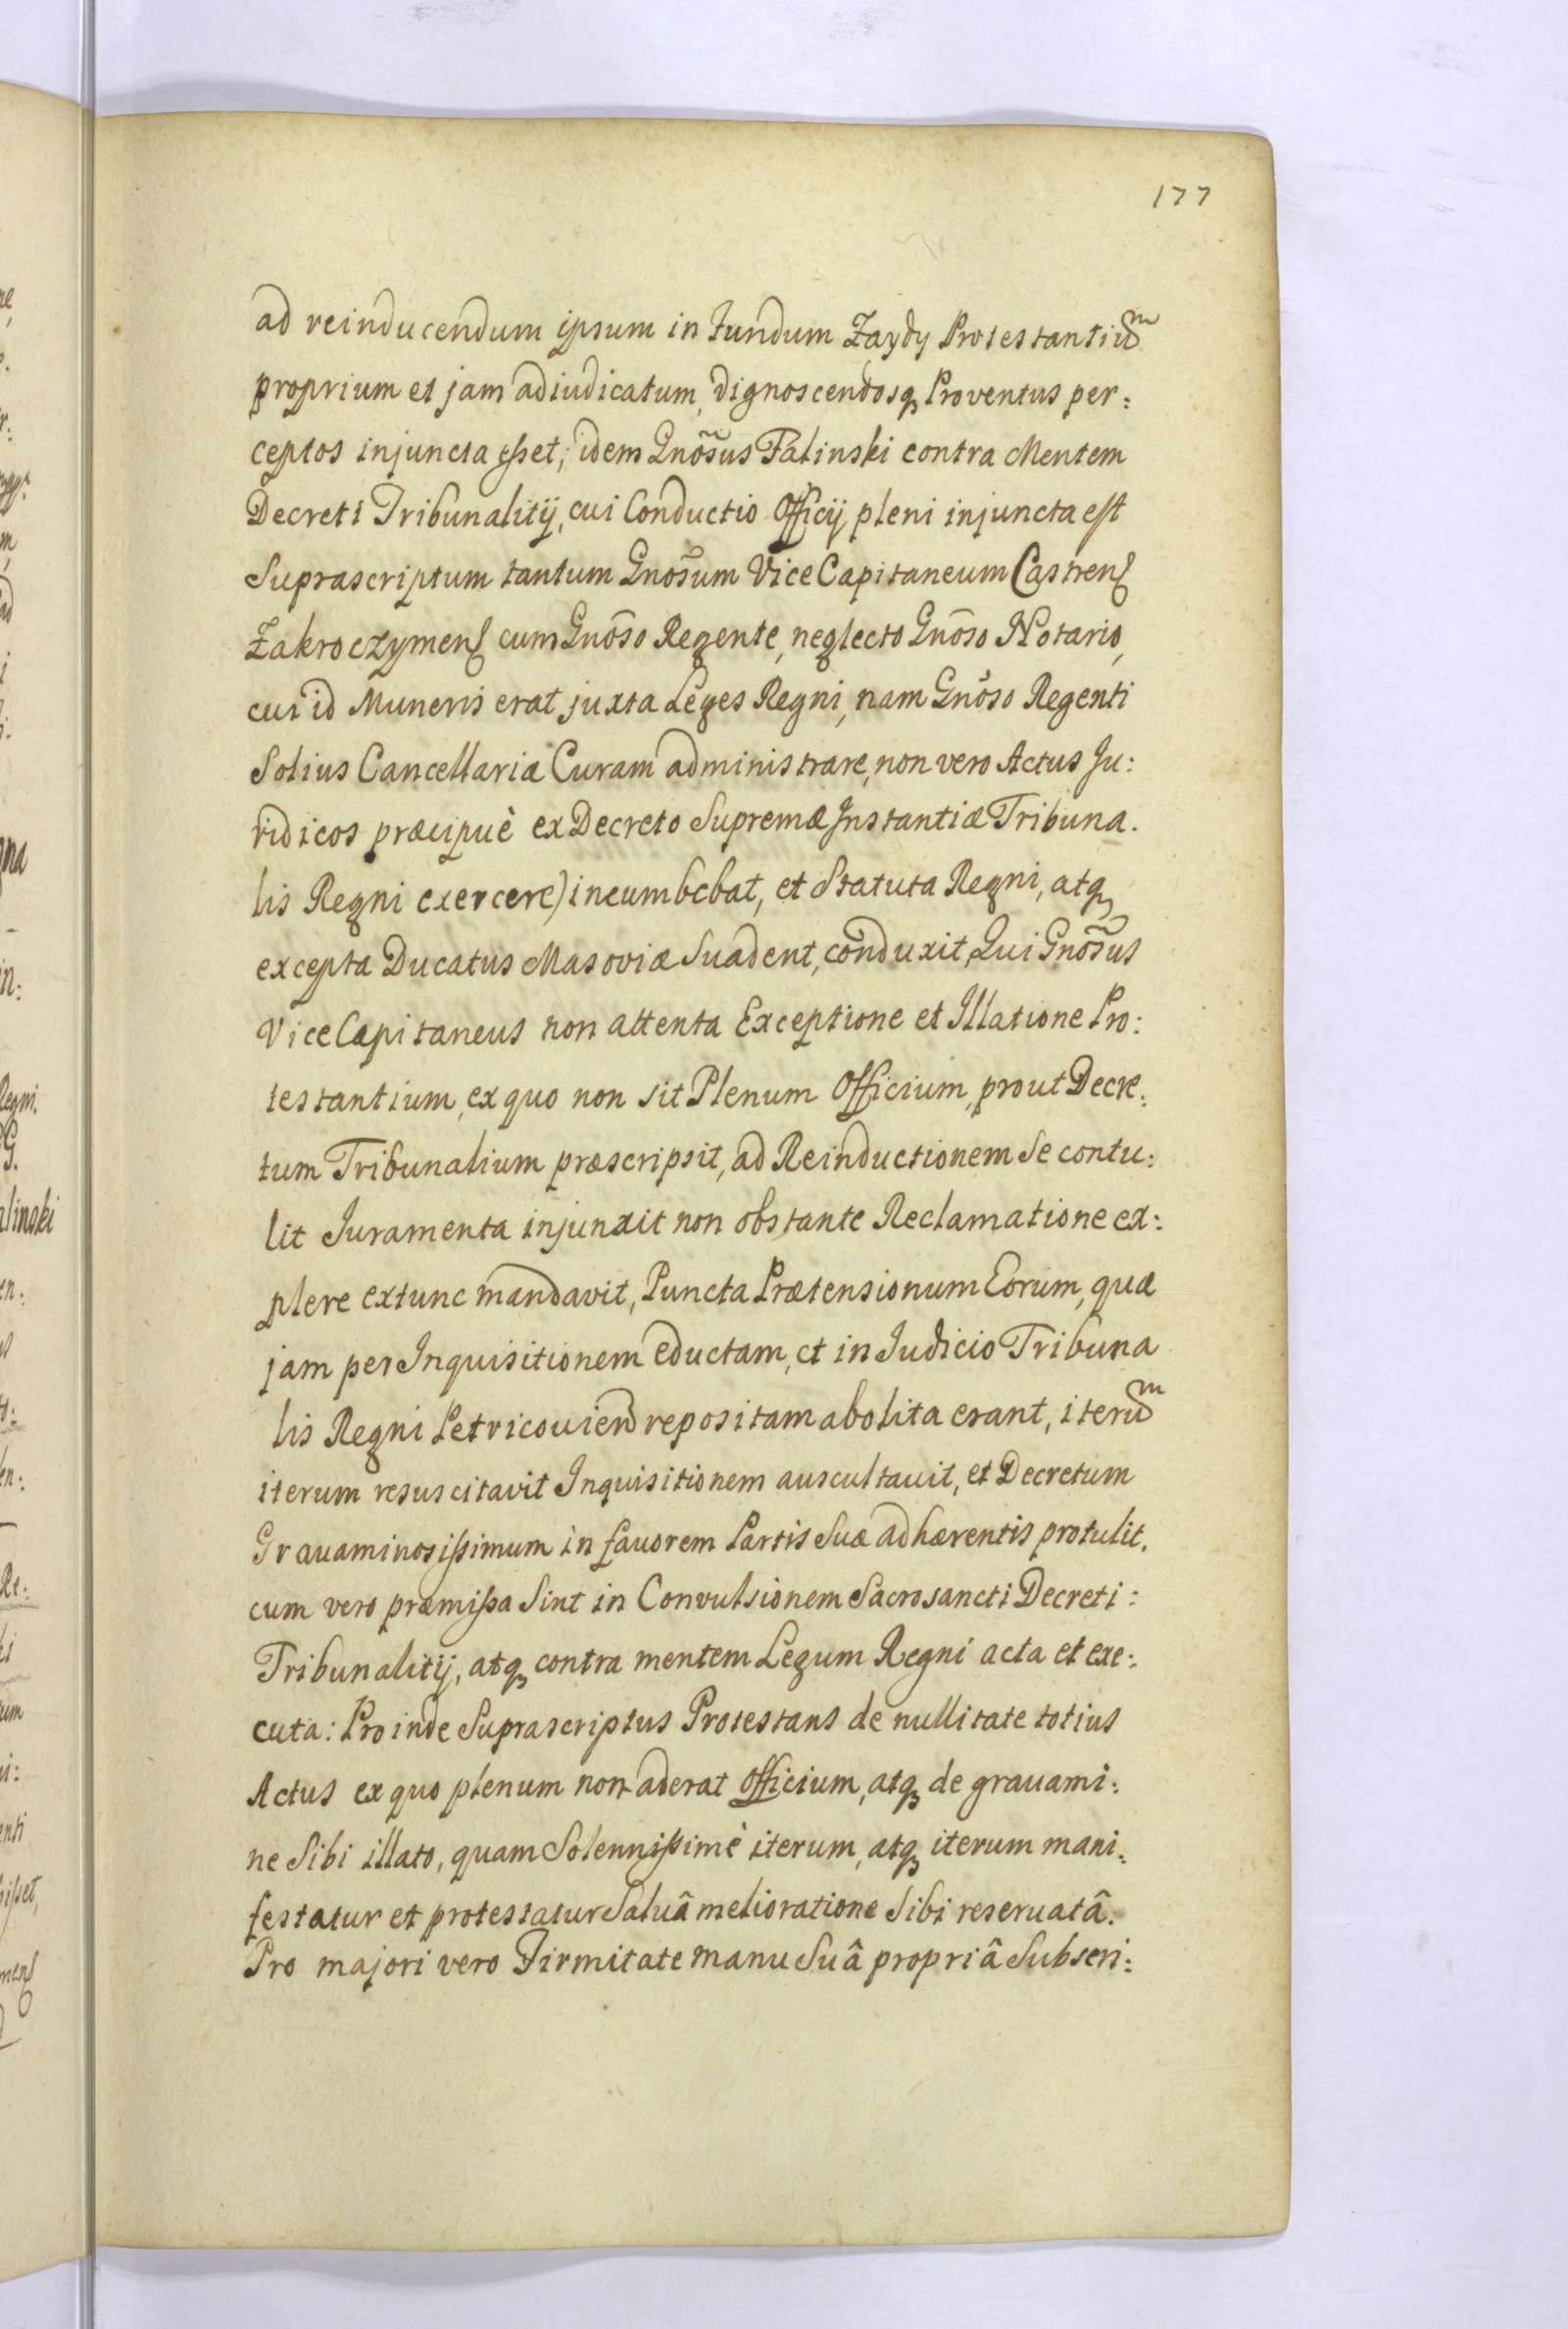 177
ad reinducendum ipsum in Fundum Zaydy Protestantiũm
proprium et jam adiudicatum, dignoscendosq Proventus per:
ceptos injuncta esset; idem Gnõsus Falinski contra Mentem
Decreti Tribunalitij, cui Conductio Officij pleni injuncta est
Suprascriptum tantum Gnõsum ViceCapitaneum Castrens
Zakroczymens cum Gnõso Regente, neglecto Gnõso Notario,
cui id Muneris erat juxta Leges Regni, nam Gnõso Regenti
Solius Cancellariæ Curam administrare, non vero Actus Ju:
ridicos præcipuè ex Decreto Supremæ Instantiæ Tribuna.
lis Regni exercere) incumbebat, et Statuta Regni, atq
excepta Ducatus Masoviæ Suadent, conduxit, Qui Gnõsus
ViceCapitaneus non attenta Exceptione et Illatione Pro:
testantium, ex quo non sit Plenum Officium, prout Decre:
tum Tribunalium præscripsit, ad Reinductionem Se contu:
lit Juramenta injunxit non obstante Reclamatione ex:
plere extunc mandavit, Puncta Prætensionum Eorum, quæ
jam per Inquisitionem eductam, et in Judicio Tribuna
lis Regni Petricouien repositam abolita erant, iterũm
iterum resuscitavit Inquisitionem auscultauit, et Decretum
Grauaminosissimum in fauorem Partis Suæ adhærentis protulit.
cum vero præmissa Sint in Convulsionem Sacrosancti Decreti:
Tribunalitij, atq contra mentem Legum Regni acta et exe:
cuta: Proinde Suprascriptus Protestans de nullitate totius
Actus ex quo plenum non aderat Officium, atq de grauami:
ne Sibi illato, quam Solennissimè iterum, atq iterum mani:
festatur et protestatur Saluâ melioratione Sibi reseruatâ.
Pro majori vero Firmitate manu Suâ propriâ Subscri: